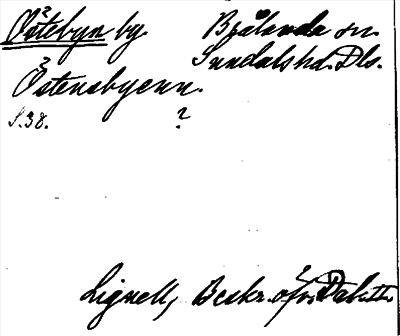 Östebyn by. Brålanda sn.
Sundals hd. Dls.
Östensbyenn.
S. 38. ?
Lignell, Beskr. öfv. Dal